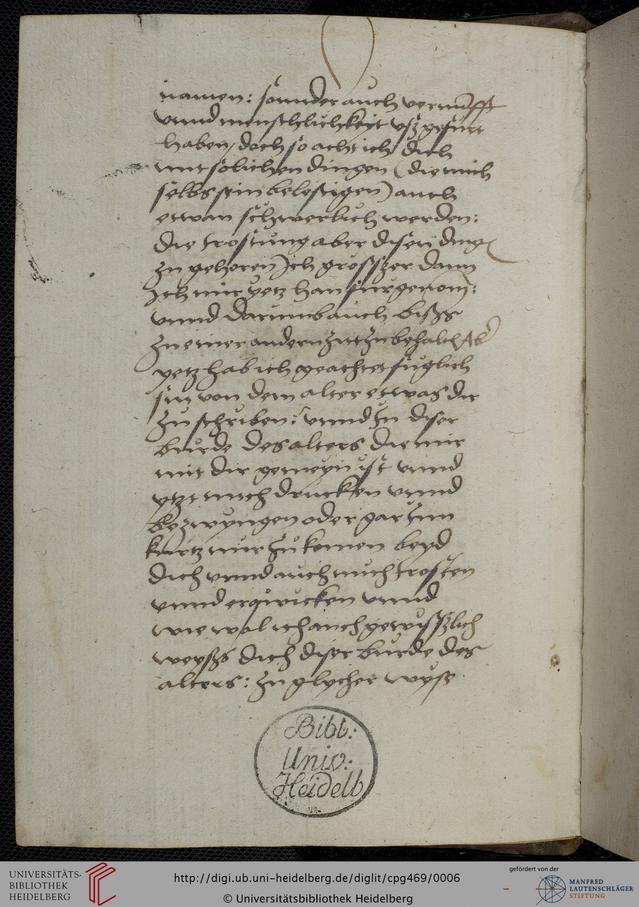 namen: sonnder auch vernunfft
vnnd menschlichkeyt vsz gefurt
haben, doch so acht ich dich
mit solichen dingen (die mich
selbs sein belestigen) auch
ettwan schwerlich werden:
die trostung aber disen ding
zu gehoren) ich grosszer dann
Ich mir yetz han furgenom:
vnnd darumb auch bisz
zu einer andern zyt zu behalt
yetz hab ich geachtet fuglich
sin von dem alter ettwas dir
zu schriben: vnnd In diser
burde des alters die mir
mit dir gemeyn ist vnnd
yetzt mich drucken vnnd
bezwyngen oder gar Inn
kurtz mir zu komen beyd
dich vnnd auch mich trosten
vnnd erquicken vnnd
wie wol ich auch gewisszlich
weysz dich diser burde des
alters: zu glycher wysz
Bibl:
Univ:
Heidelb
UNIVERSITÄTS-
BIBLIOTHEK
HEIDELBERG
http://digi.ub.uni-heidelberg.de/diglit/cpg469/0006
© Universitätsbibliothek Heidelberg
gefördert von der
MANFRED
LAUTENSCHLÄGER
STIFTUNG